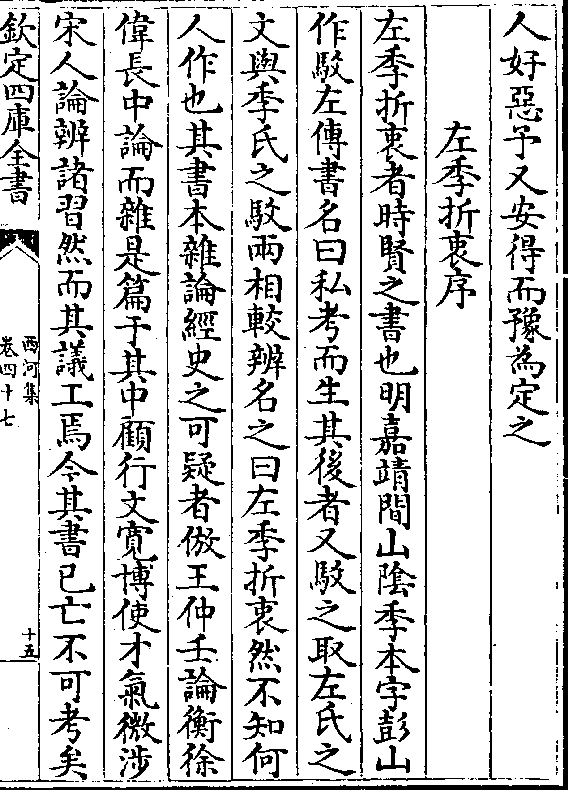 人好惡予又安得而豫為定之
左季折衷序
左季折衷者時賢之書也明嘉靖間山陰季本字彭山
作駁左傳書名曰私考而生其後者又駁之取左氏之
文與季氏之駁兩相較辨名之曰左季折衷然不知何
人作也其書本雜論經史之可疑者倣王仲壬論衡徐
偉長中論而雜是篇于其中顧行文寛博使才氣微涉
宋人論辨諸習然而其議工焉今其書已亡不可考矣
欽定四庫全書
西河集
卷四十七
十五